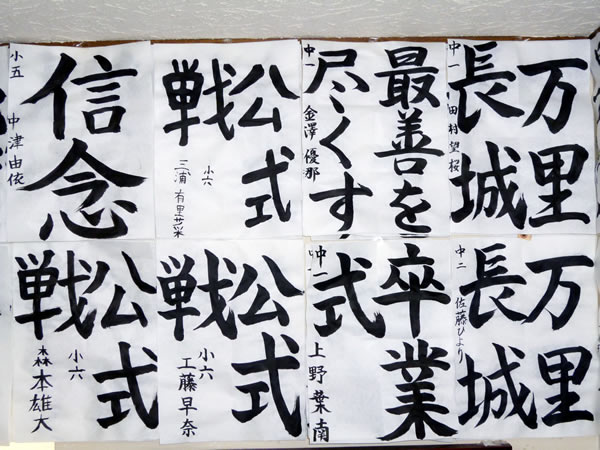 万里
長城
中一
田村望桜
最善を
尽くす
中一
金澤優那
公式
戦
小六
三浦有里菜
信念
小五
中津由依
万里
長城
中二
佐藤ひより
卒業
式
中一
上野葉南
公式
戦
小六
工藤早奈
公式
戦
小六
森本雄大